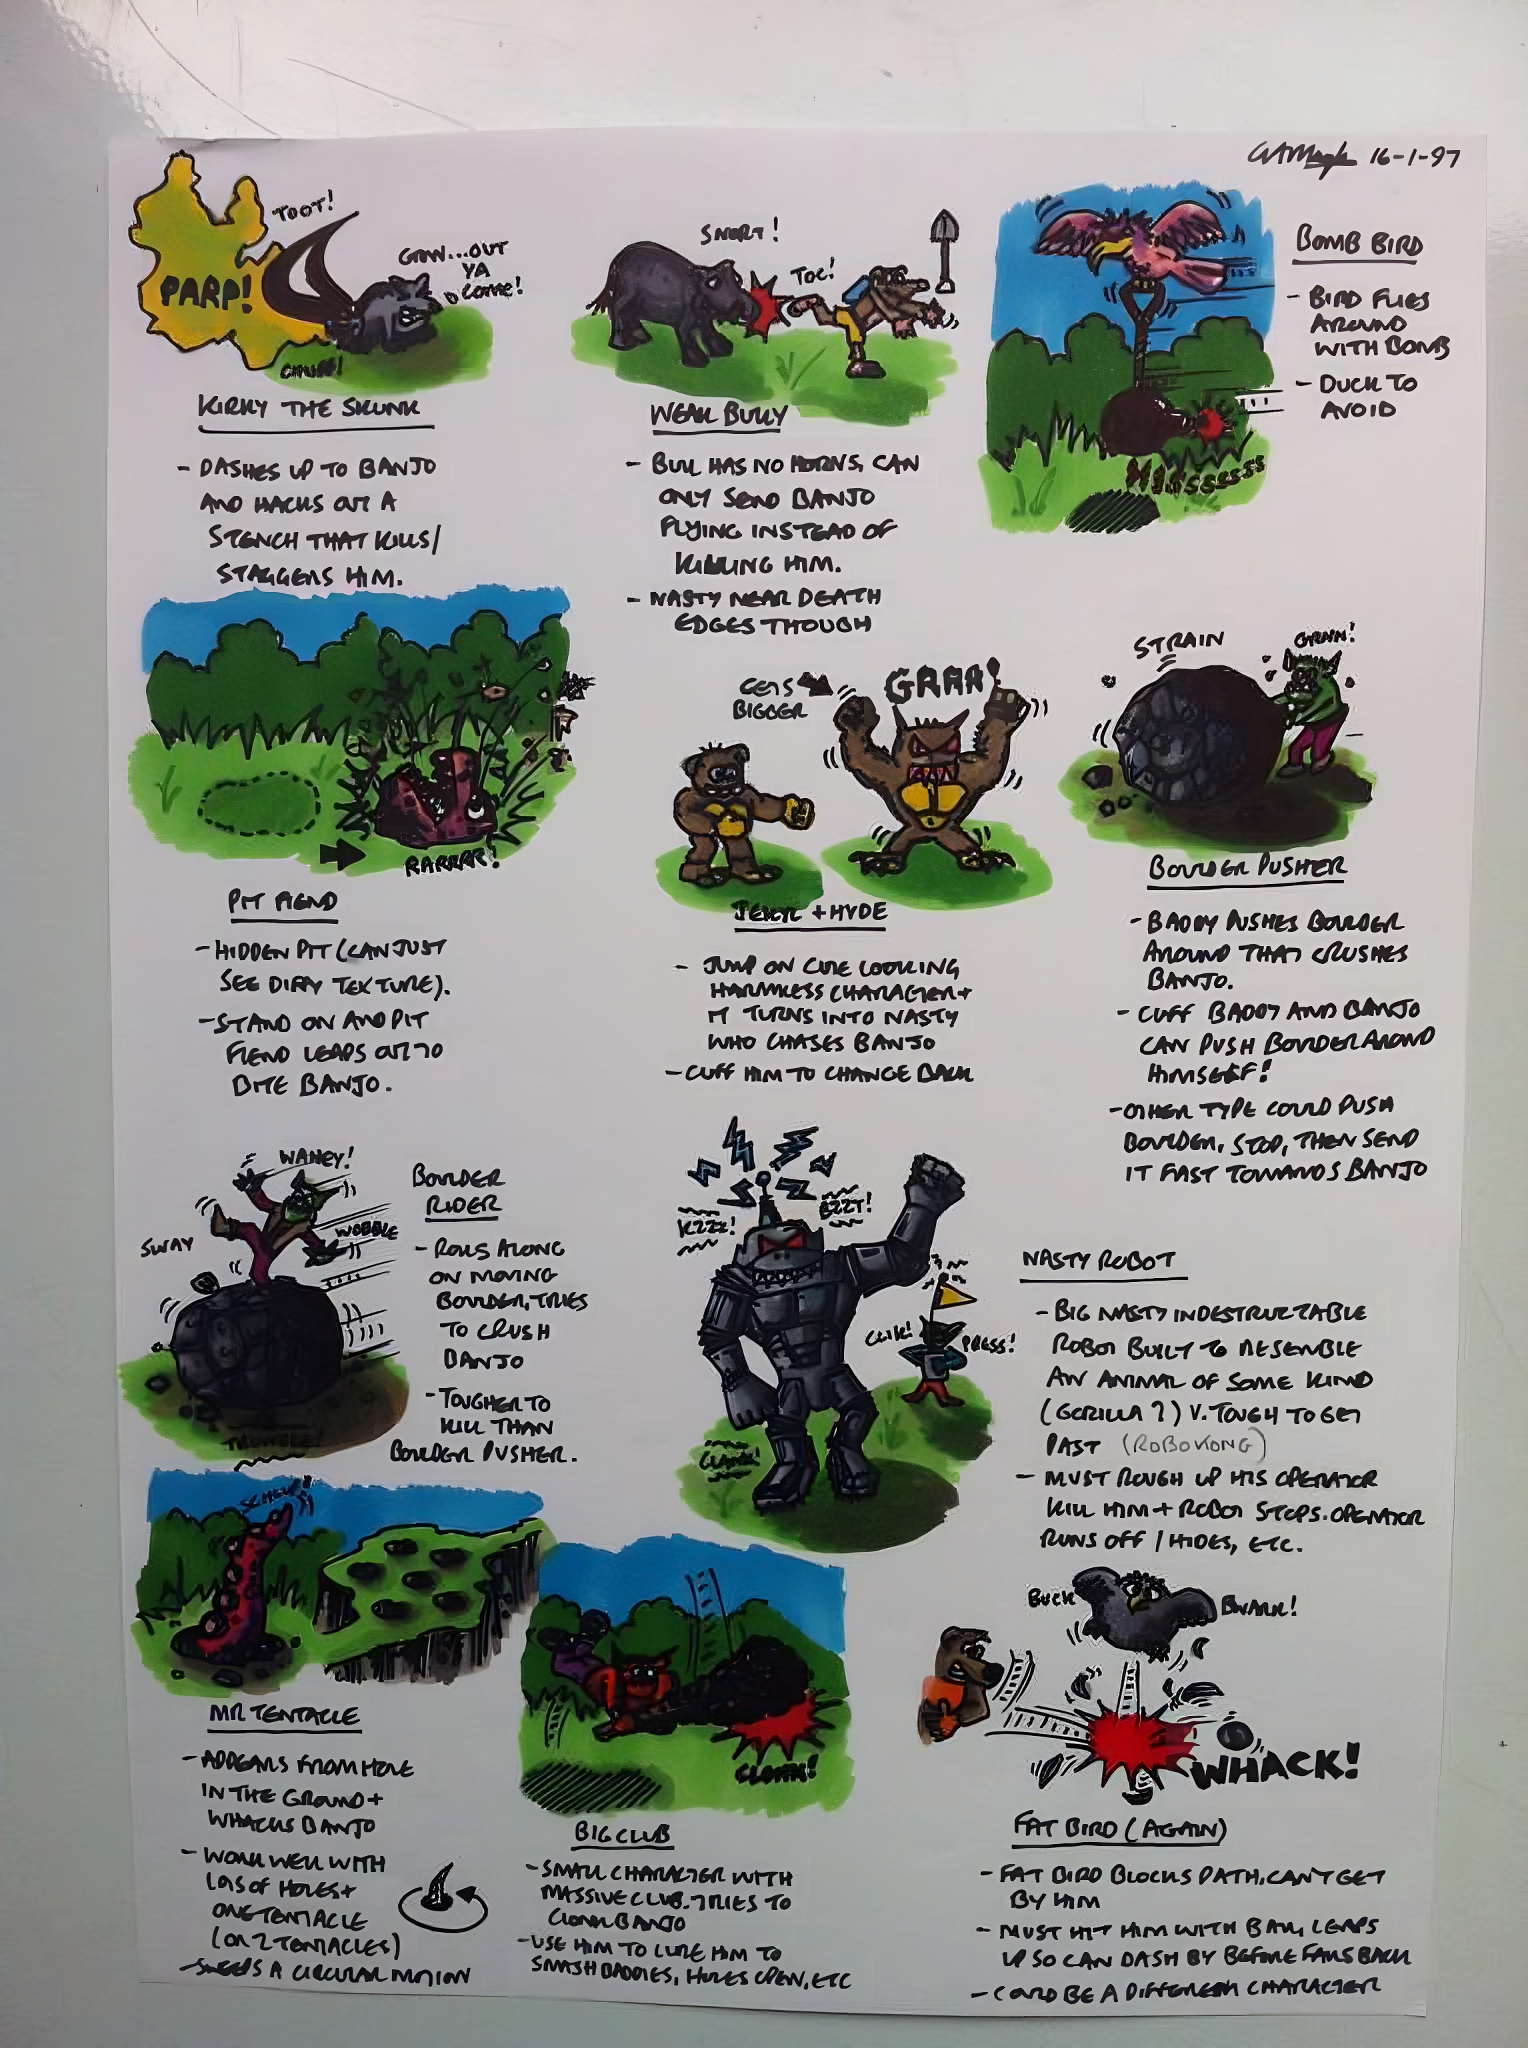 16-1-97
TOOT!
PARP!
GRW...OUT
YA
COME!
KIRKY THE SKUNK
- DASHES UP TO BANJO
AND HACKS OUT A
STENCH THAT KILLS/
STAGGERS HIM.
SNORT!
TOC!
WEAK BULLY
- BULL HAS NO HORNS, CAN
ONLY SEND BANJO
FLYING INSTEAD OF
KILLING HIM.
- NASTY NEAR DEATH
EDGES THOUGH
HISSSSSSS
BOMB BIRD
- BIRD FLIES
AROUND
WITH BOMB
- DUCK TO
AVOID
RARRRR!
PIT FIEND
- HIDDEN PIT (CAN JUST
SEE DIFF TEXTURE).
- STAND ON AND PIT
FIEND LEAPS OUT TO
BITE BANJO.
GETS
BIGGER
GRRR!
JEKYL + HYDE
- JUMP ON CUTE LOOKING
HARMLESS CHARACTER +
IT TURNS INTO NASTY
WHO CHASES BANJO
- CUFF HIM TO CHANGE BACK
STRAIN
GROAN!
BOULDER PUSHER
- BADDY PUSHES BOULDER
AROUND THAT CRUSHES
BANJO.
- CUFF BADDY AND BANJO
CAN PUSH BOULDER AROUND
HIMSELF!
- OTHER TYPE COULD PUSH
BOULDER, STOP, THEN SEND
IT FAST TOWARDS BANJO
WAHEY!
SWAY
WOBBLE
BOULDER
RIDER
- ROLLS ALONG
ON MOVING
BOULDER, TRIES
TO CRUSH
BANJO
- TOUGHER TO
KILL THAN
BOULDER PUSHER.
KZZZ!
BZZT!
CLIK!
PRESS!
CLANK!
NASTY ROBOT
- BIG NASTY INDESTRUCTABLE
ROBOT BUILT TO RESEMBLE
AN ANIMAL OF SOME KIND
(GORILLA?) V. TOUGH TO GET
PAST (ROBOKONG)
- MUST ROUGH UP HIS OPERATOR
KILL HIM + ROBOT STOPS. OPERATOR
RUNS OFF / HIDES, ETC.
MR TENTACLE
- APPEARS FROM HOLE
IN THE GROUND +
WHACKS BANJO
- WORK WELL WITH
LOTS OF HOLES +
ONE TENTACLE
(OR 2 TENTACLES)
- SWEEPS A CIRCULAR MOTION
CLONK!
BIG CLUB
- SMALL CHARACTER WITH
MASSIVE CLUB. TRIES TO
CLONK BANJO
- USE HIM TO LURE HIM TO
SMASH BADDIES, HOLES OPEN, ETC
BUCK
BWARK!
WHACK!
FAT BIRD (AGAIN)
- FAT BIRD BLOCKS PATH, CAN'T GET
BY HIM
- MUST HIT HIM WITH BALL, LEAPS
UP SO CAN DASH BY BEFORE FALLS BACK
- COULD BE A DIFFERENT CHARACTER